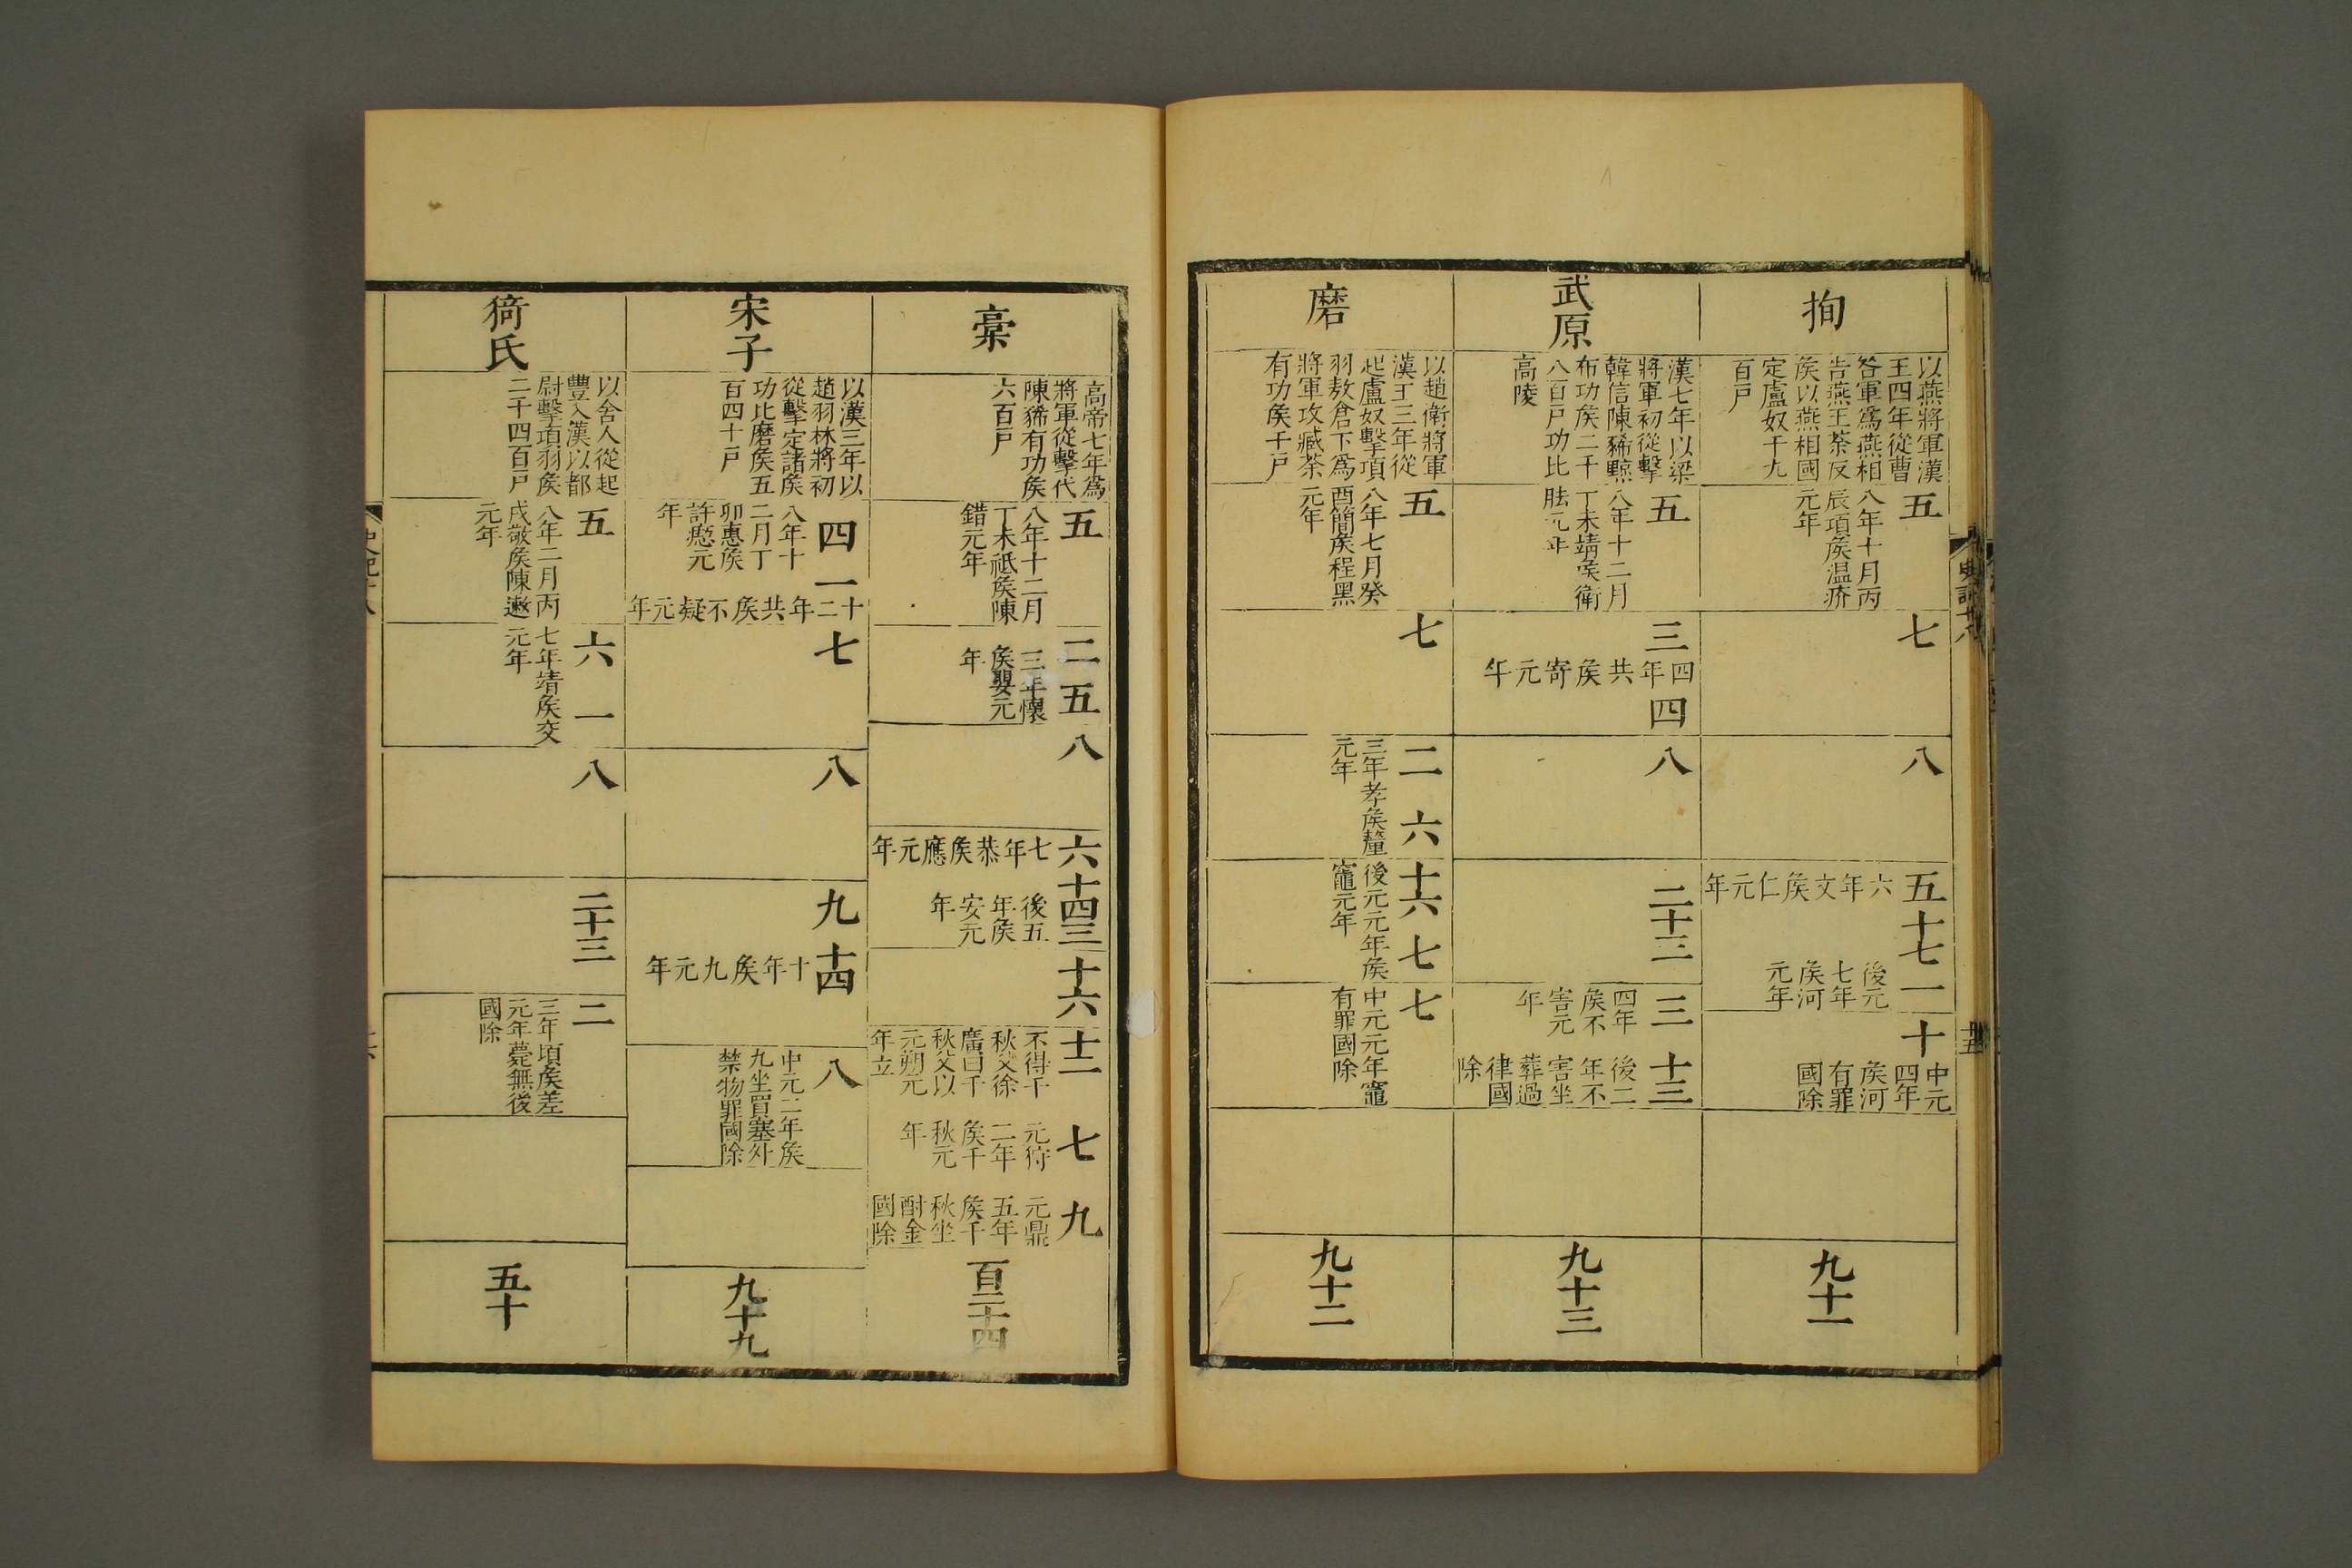 拘
以燕將軍漢
王四年從曹
咎軍爲燕相
告燕王荼反
矦以燕相國
定盧奴千九
百戶
五
八年十月丙
辰項矦温疥
元年
七
八
五
六年文矦仁元年
十七
一
後元
七年
矦河
元年
十
中元
四年
矦河
有罪
國除
九十一
武原
漢七年以梁
將軍初從擊
韓信陳豨黥
布功矦二千
八百戶功比
高陵
五
八年十二月
丁未靖矦衛
胠元年
三
四年共矦寄元年
四
八
二十三
三
四年
矦不
害元
年
十三
後二
年不
害坐
葬過
律國
除
九十三
磨
以趙衛將軍
漢王三年從
起盧奴擊項
羽敖倉下爲
將軍攻臧荼
有功矦千戶
五
八年七月癸
酉簡矦程黑
元年
七
二
三年孝矦釐
元年
六
十六
後元元年矦
竈元年
七
七
中元元年竈
有罪國除
九十二
史記十八
十五
槀
高帝七年爲
將軍從擊代
陳豨有功矦
六百戶
五
八年十二月
丁未祗矦陳
錯元年
二
三年懷
矦嬰元
年
五
八
六
七年恭矦應元年
十四
三
後五
年矦
安元
年
十六
十二
不得千
秋父徐
廣曰千
秋父以
元朔元
年立
七
元狩
二年
矦千
秋元
年
九
元鼎
五年
矦千
秋坐
酎金
國除
百二十四
宋子
以漢三年以
趙羽林將初
從擊定諸矦
功比磨矦五
百四十戶
四
八年十
二月丁
卯惠矦
許瘛元
年
一
十二年共矦不疑元年
七
八
九
十年矦九元年
十四
八
中元二年矦
九坐買塞外
禁物罪國除
九十九
猗氏
以舍人從起
豐入漢以都
尉擊項羽矦
二千四百戶
五
八年二月丙
戌敬矦陳遫
元年
六
七年靖矦交
元年
一
八
二十三
二
三年頃矦差
元年薨無後
國除
五十